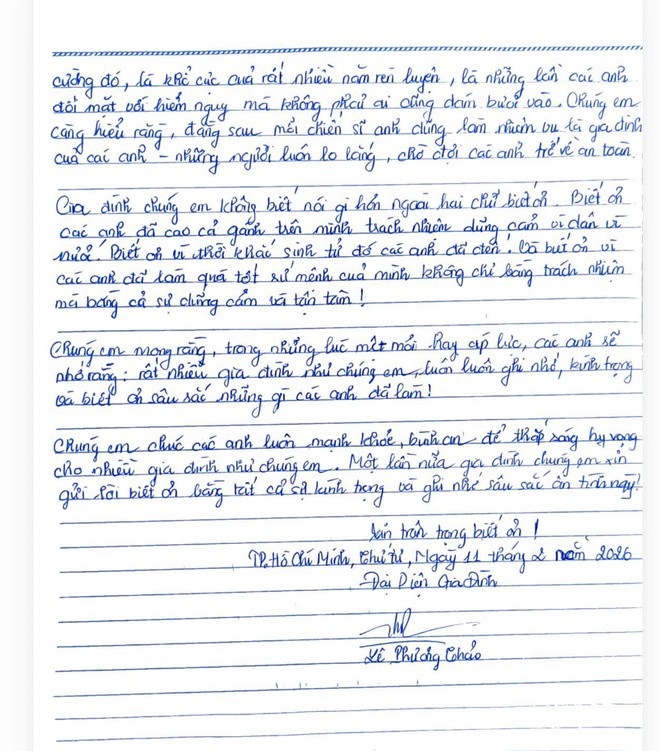 cường đó, là khổ cực của rất nhiều năm rèn luyện, là những lần các anh
đối mặt với hiểm nguy mà không phải ai cũng dám bước vào. Chúng em
càng hiểu rằng, đằng sau mỗi chiến sĩ anh dũng làm nhiệm vụ là gia đình
của các anh - những người luôn lo lắng, chờ đợi các anh trở về an toàn.
Gia đình chúng em không biết nói gì hơn ngoài hai chữ biết ơn. Biết ơn
các anh đã cao cả gánh trên mình trách nhiệm dũng cảm vì dân vì
nước. Biết ơn vì thời khắc sinh tử đó các anh đã đến! Và biết ơn vì
các anh đã làm quá tốt sứ mệnh của mình không chỉ bằng trách nhiệm
mà bằng cả sự dũng cảm và tận tâm!
Chúng em mong rằng, trong những lúc mệt mỏi hay áp lực, các anh sẽ
nhớ rằng: rất nhiều gia đình như chúng em, luôn luôn ghi nhớ, kính trọng
và biết ơn sâu sắc những gì các anh đã làm!
Chúng em chúc các anh luôn mạnh khỏe, bình an để thắp sáng hy vọng
cho nhiều gia đình như chúng em. Một lần nữa gia đình chúng em xin
gửi lời biết ơn bằng tất cả sự kính trọng và ghi nhớ sâu sắc ân tình này!
Xin trân trọng biết ơn!
TP.Hồ Chí Minh, Thứ tư, Ngày 11 tháng 2 năm 2026
Đại Diện Gia Đình
Lê Phương Thảo